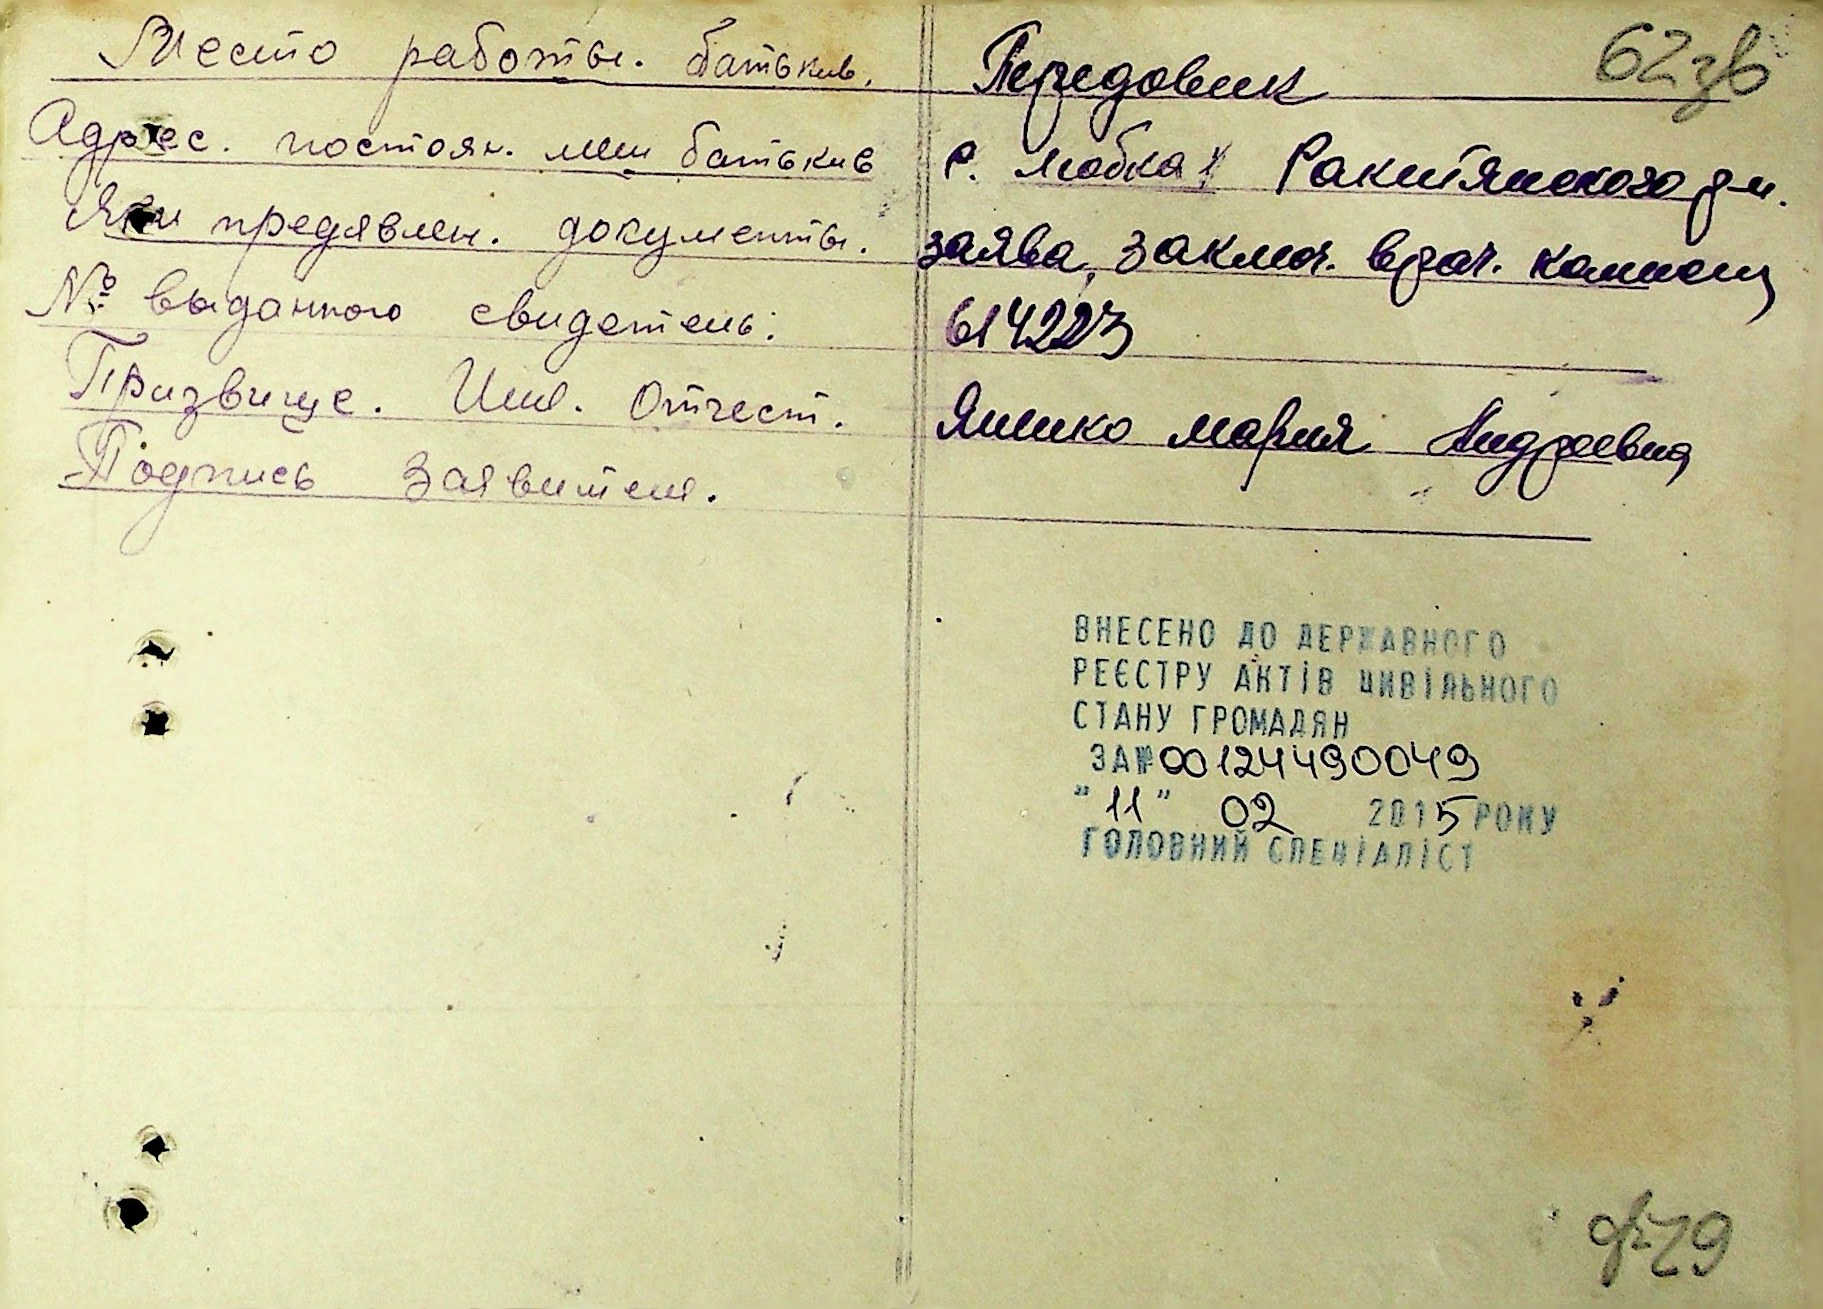 62зв
Место работы. батькив. Передовик
Адрес. постоян. мин батькив с. Любка Ракитянского р-н.
Яки предявлен. документы. заява, заключ. врач. комисии
№ выданного свидетель: 614223
Призвище. Имя. Отчест. Яшико Мария Андреевна
Подпись заявителя.
ВНЕСЕНО ДО ДЕРЖАВНОГО
РЕЄСТРУ АКТІВ ЦИВІЛЬНОГО
СТАНУ ГРОМАДЯН
ЗА № 00124490049
"11" 02 2015 РОКУ
ГОЛОВНИЙ СПЕЦІАЛІСТ